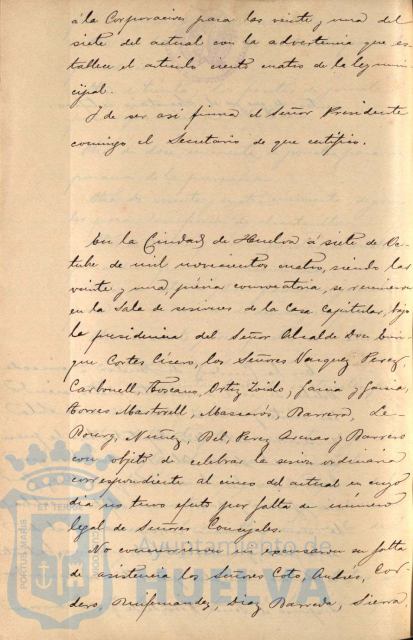 á la Corporacion para las veinte y una del
siete del actual con la advertencia que es-
tablece el artículo ciento cuatro de la ley muni-
cipal.
Y de ser asi firma el Señor Presidente
conmigo el Secretario de que certifico.
En la Ciudad de Huelva á siete de Oc-
tubre de mil novecientos cuatro, siendo las
veinte y una previa convocatoria, se reunieron
en la Sala de sesiones de la Casa Capitular, bajo
la presidencia del Señor Alcalde Don Enri-
que Cortes Cisero, los Señores Vazquez Perez,
Carbonell, Toscano, Ortiz Toido, Garcia y Garcia,
Torres Martorell, Massarós, Barrera, Le-
Bourg, Nuñez, Bel, Perez Arenas y Barrero
con objeto de celebrar la sesion ordinaria
correspondiente al cinco del actual en cuyo
dia no tuvo efecto por falta de número
legal de Señores Concejales.
No concurrieron ni escusaron su falta
de asistencia los Señores Coto, Andres, Cor-
dero, Diaz Barreda, Sierra
PORTUS MARIS
ET TERRAE
CUSTODIA
Ayuntamiento de
HUELVA